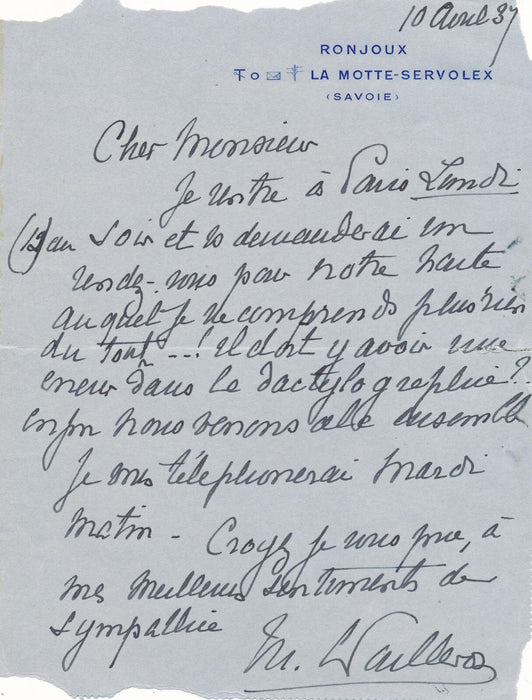 10 Avril 37
RONJOUX
LA MOTTE-SERVOLEX
(SAVOIE)
Cher Monsieur
Je rentre à Paris Lundi
(12) au soir et vs demanderai un
rendez-vous pour notre
auquel je ne comprends plus rien
du tout ---! Il doit y avoir une
erreur dans la dactylographie?
enfin nous verrons cela ensemble
Je vous téléphonerai Mardi
Matin - Croyez je vous prie, à
mes meilleurs sentiments de
sympathie
M.